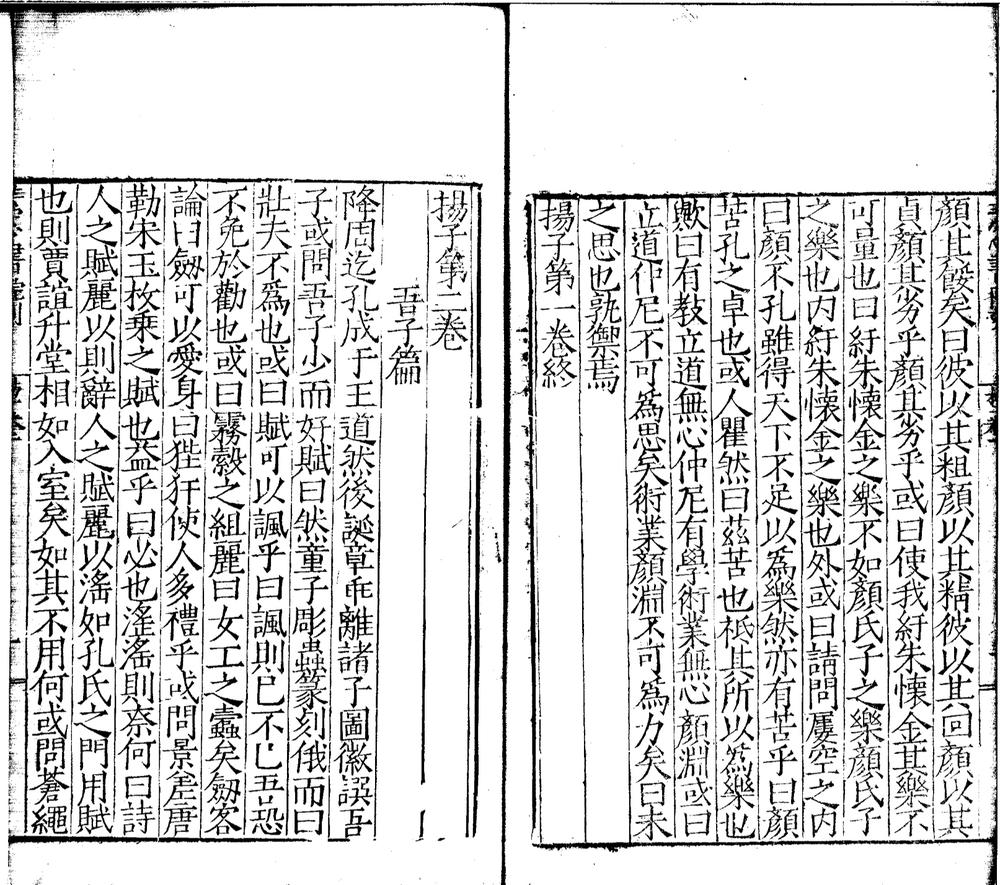 顏其餒矣曰彼以其粗顏以其精彼以其回顏以其
貞顏其劣乎顏其劣乎或曰使我紆朱懷金其樂不
可量也曰紆朱懷金之樂不如顏氏子之樂顏氏子
之樂也内紆朱懷金之樂也外或曰請問屢空之内
曰顏不孔雖得天下不足以為樂然亦有苦乎曰顏
苦孔之卓也或人瞿然曰茲苦也祇其所以為樂也
歟曰有教立道無心仲尼有學術業無心顏淵或曰
立道仲尼不可為思矣術業顏淵不可為力矣曰未
之思也孰禦焉
揚子第一卷終
揚子第二卷
吾子篇
降周迄孔成于王道然後誕章乖離諸子圖徽譔吾
子或問吾子少而好賦曰然童子彫蟲篆刻俄而曰
壯夫不為也或曰賦可以諷乎曰諷則已不已吾恐
不免於勸也或曰霧縠之組麗曰女工之蠹矣劒客
論曰劒可以愛身曰狴犴使人多禮乎或問景差唐
勒宋玉枚乗之賦也益乎曰必也滛滛則奈何曰詩
人之賦麗以則辭人之賦麗以滛如孔氏之門用賦
也則賈誼升堂相如入室矣如其不用何或問蒼繩